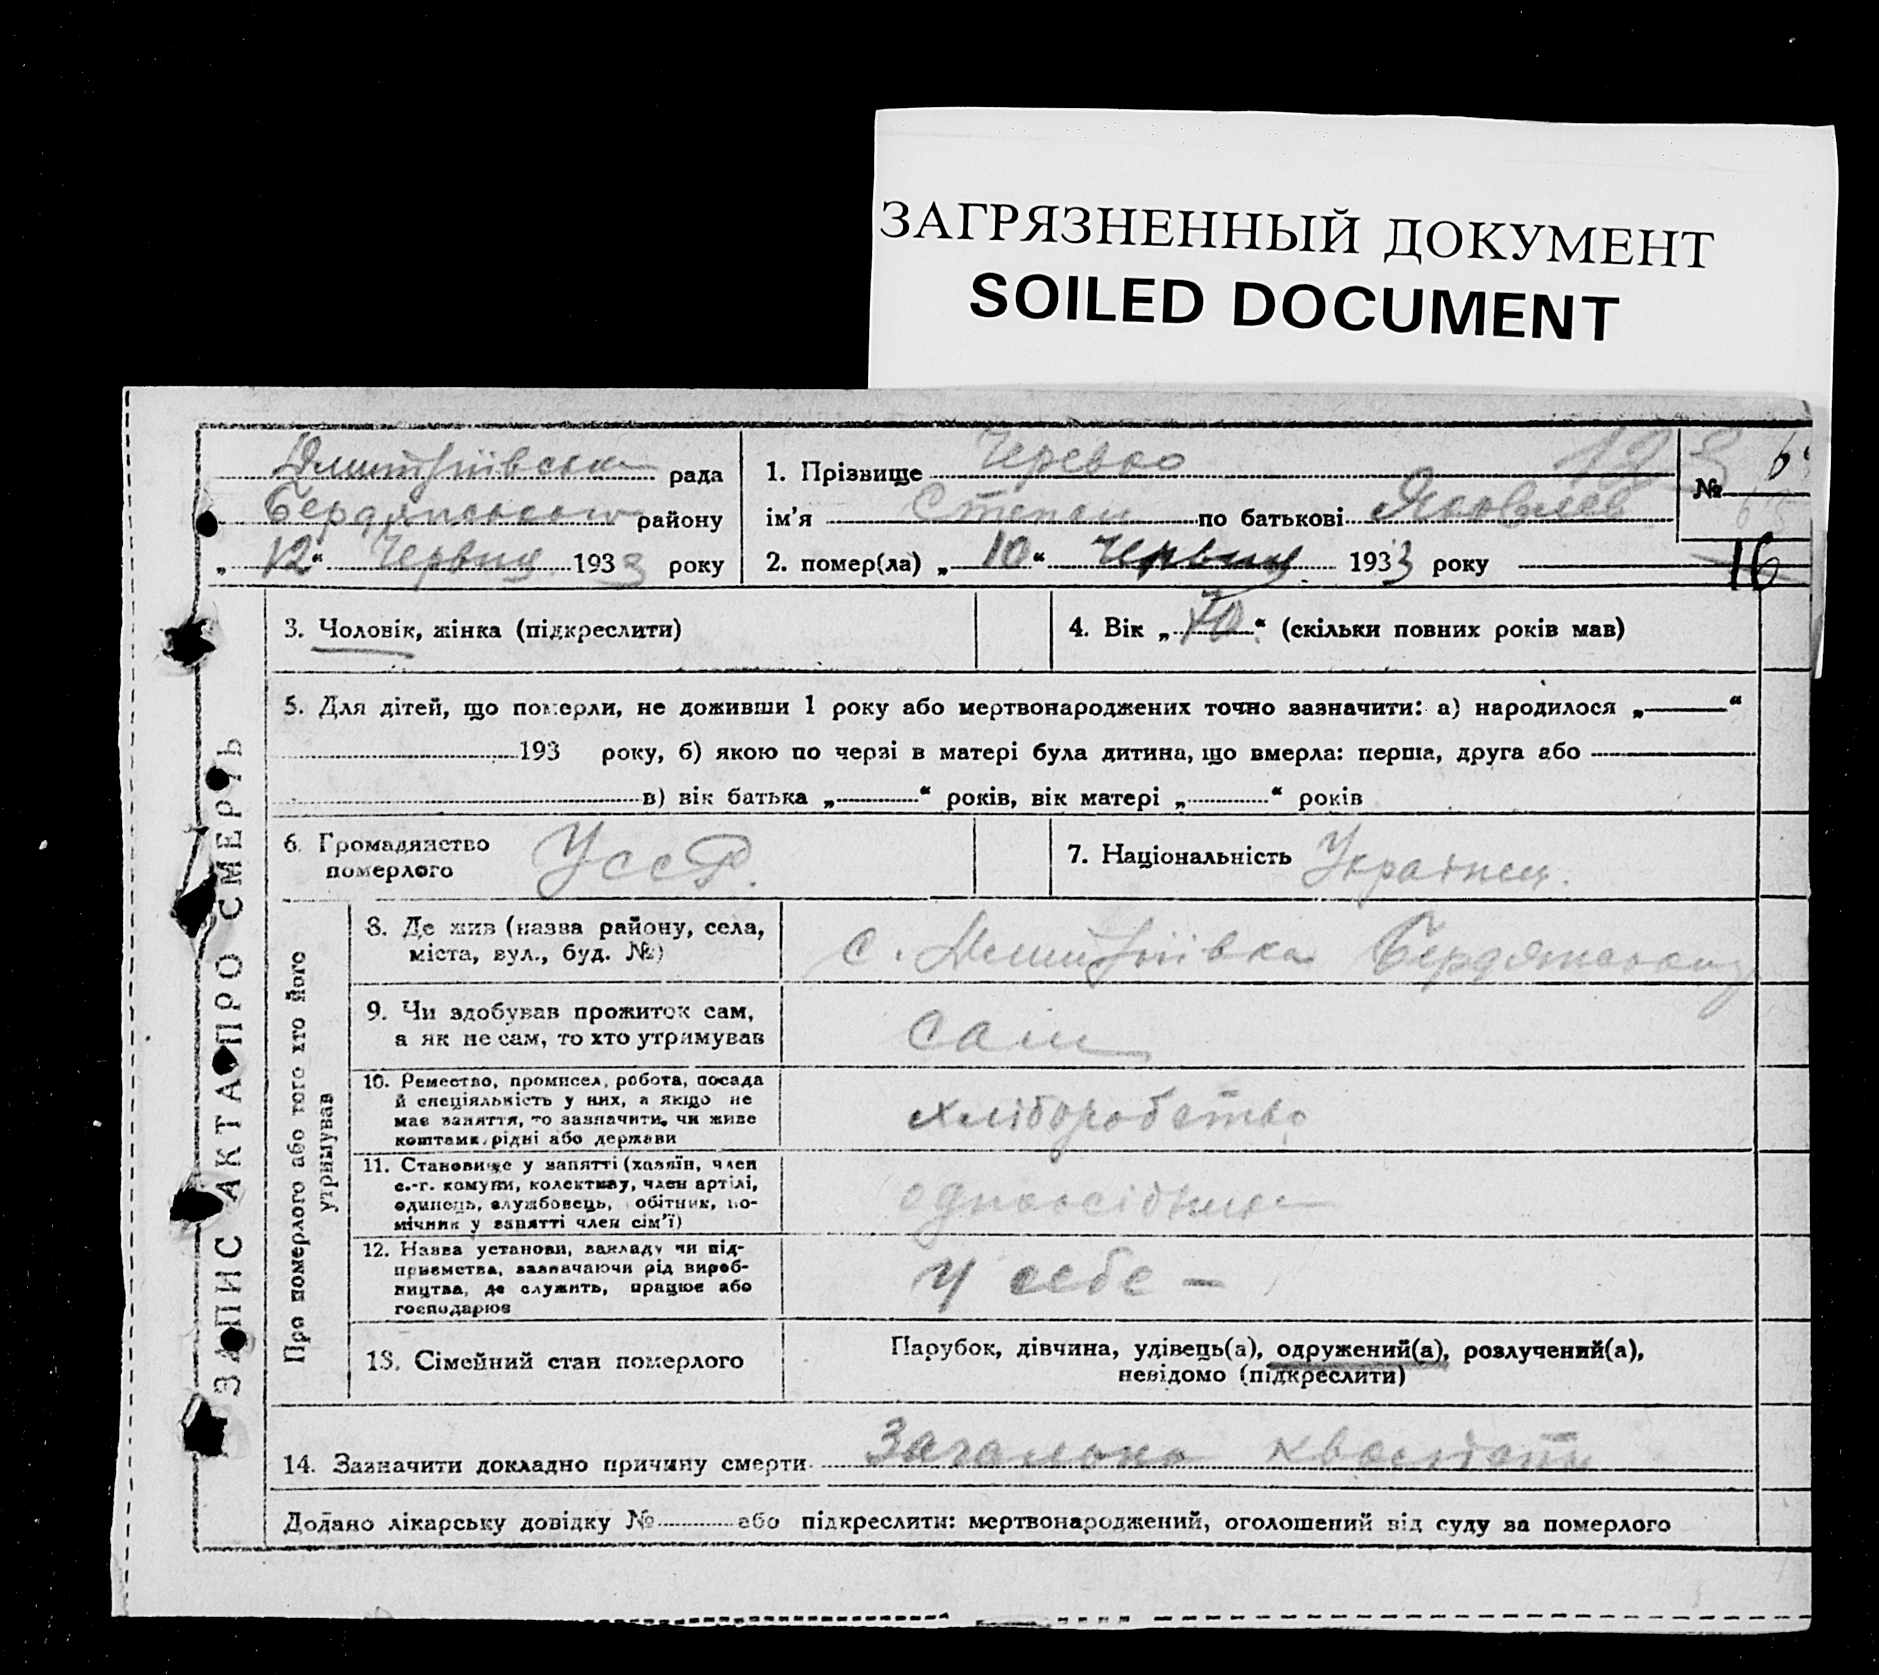 ЗАГРЯЗНЕННЫЙ ДОКУМЕНТ
SOILED DOCUMENT
Дмитріївська рада
Бердянського району
„12“ Червня 1933 року
1. Прізвище Черевко 123
ім’я Степан по батькові Яковлев
2. помер(ла) „10“ Червня 1933 року
№ 6
16
3. Чоловік, жінка (підкреслити)
4. Вік „70“ (скільки повних років мав)
5. Для дітей, що померли, не доживши 1 року або мертвонароджених точно зазначити: а) народилося „ “
193 року, б) якою по черзі в матері була дитина, що вмерла: перша, друга або
в) вік батька „ “ років, вік матері „ “ років
6. Громадянство
померлого УССР.
7. Національність Украінец.
ЗАПИС АКТА ПРО СМЕРТЬ
Про померлого або того хто його
утримував
8. Де жив (назва району, села,
міста, вул., буд. №) с. Дмитріівка Бердянського
9. Чи здобував прожиток сам,
а як не сам, то хто утримував сам
10. Ремество, промисел, робота, посада
й спеціяльність у них, а якщо не
має заняття, то зазначити, чи живе
коштами рідні або держави хліборобство
11. Становище у занятті (хазяїн, член
с.-г. комуни, колективу, член артілі,
одинець, службовець, робітник, по-
мічник у занятті член сім’ї) одноосібник
12. Назва установи, закладу чи під-
приємства, зазначаючи рід вироб-
ництва, де служить, працює або
господарює у себе –
13. Сімейний стан померлого
Парубок, дівчина, удівець(а), одружений(а), розлучений(а),
невідомо (підкреслити)
14. Зазначити докладно причину смерти Загальна
Додано лікарську довідку № або підкреслити: мертвонароджений, оголошений від суду за померлого